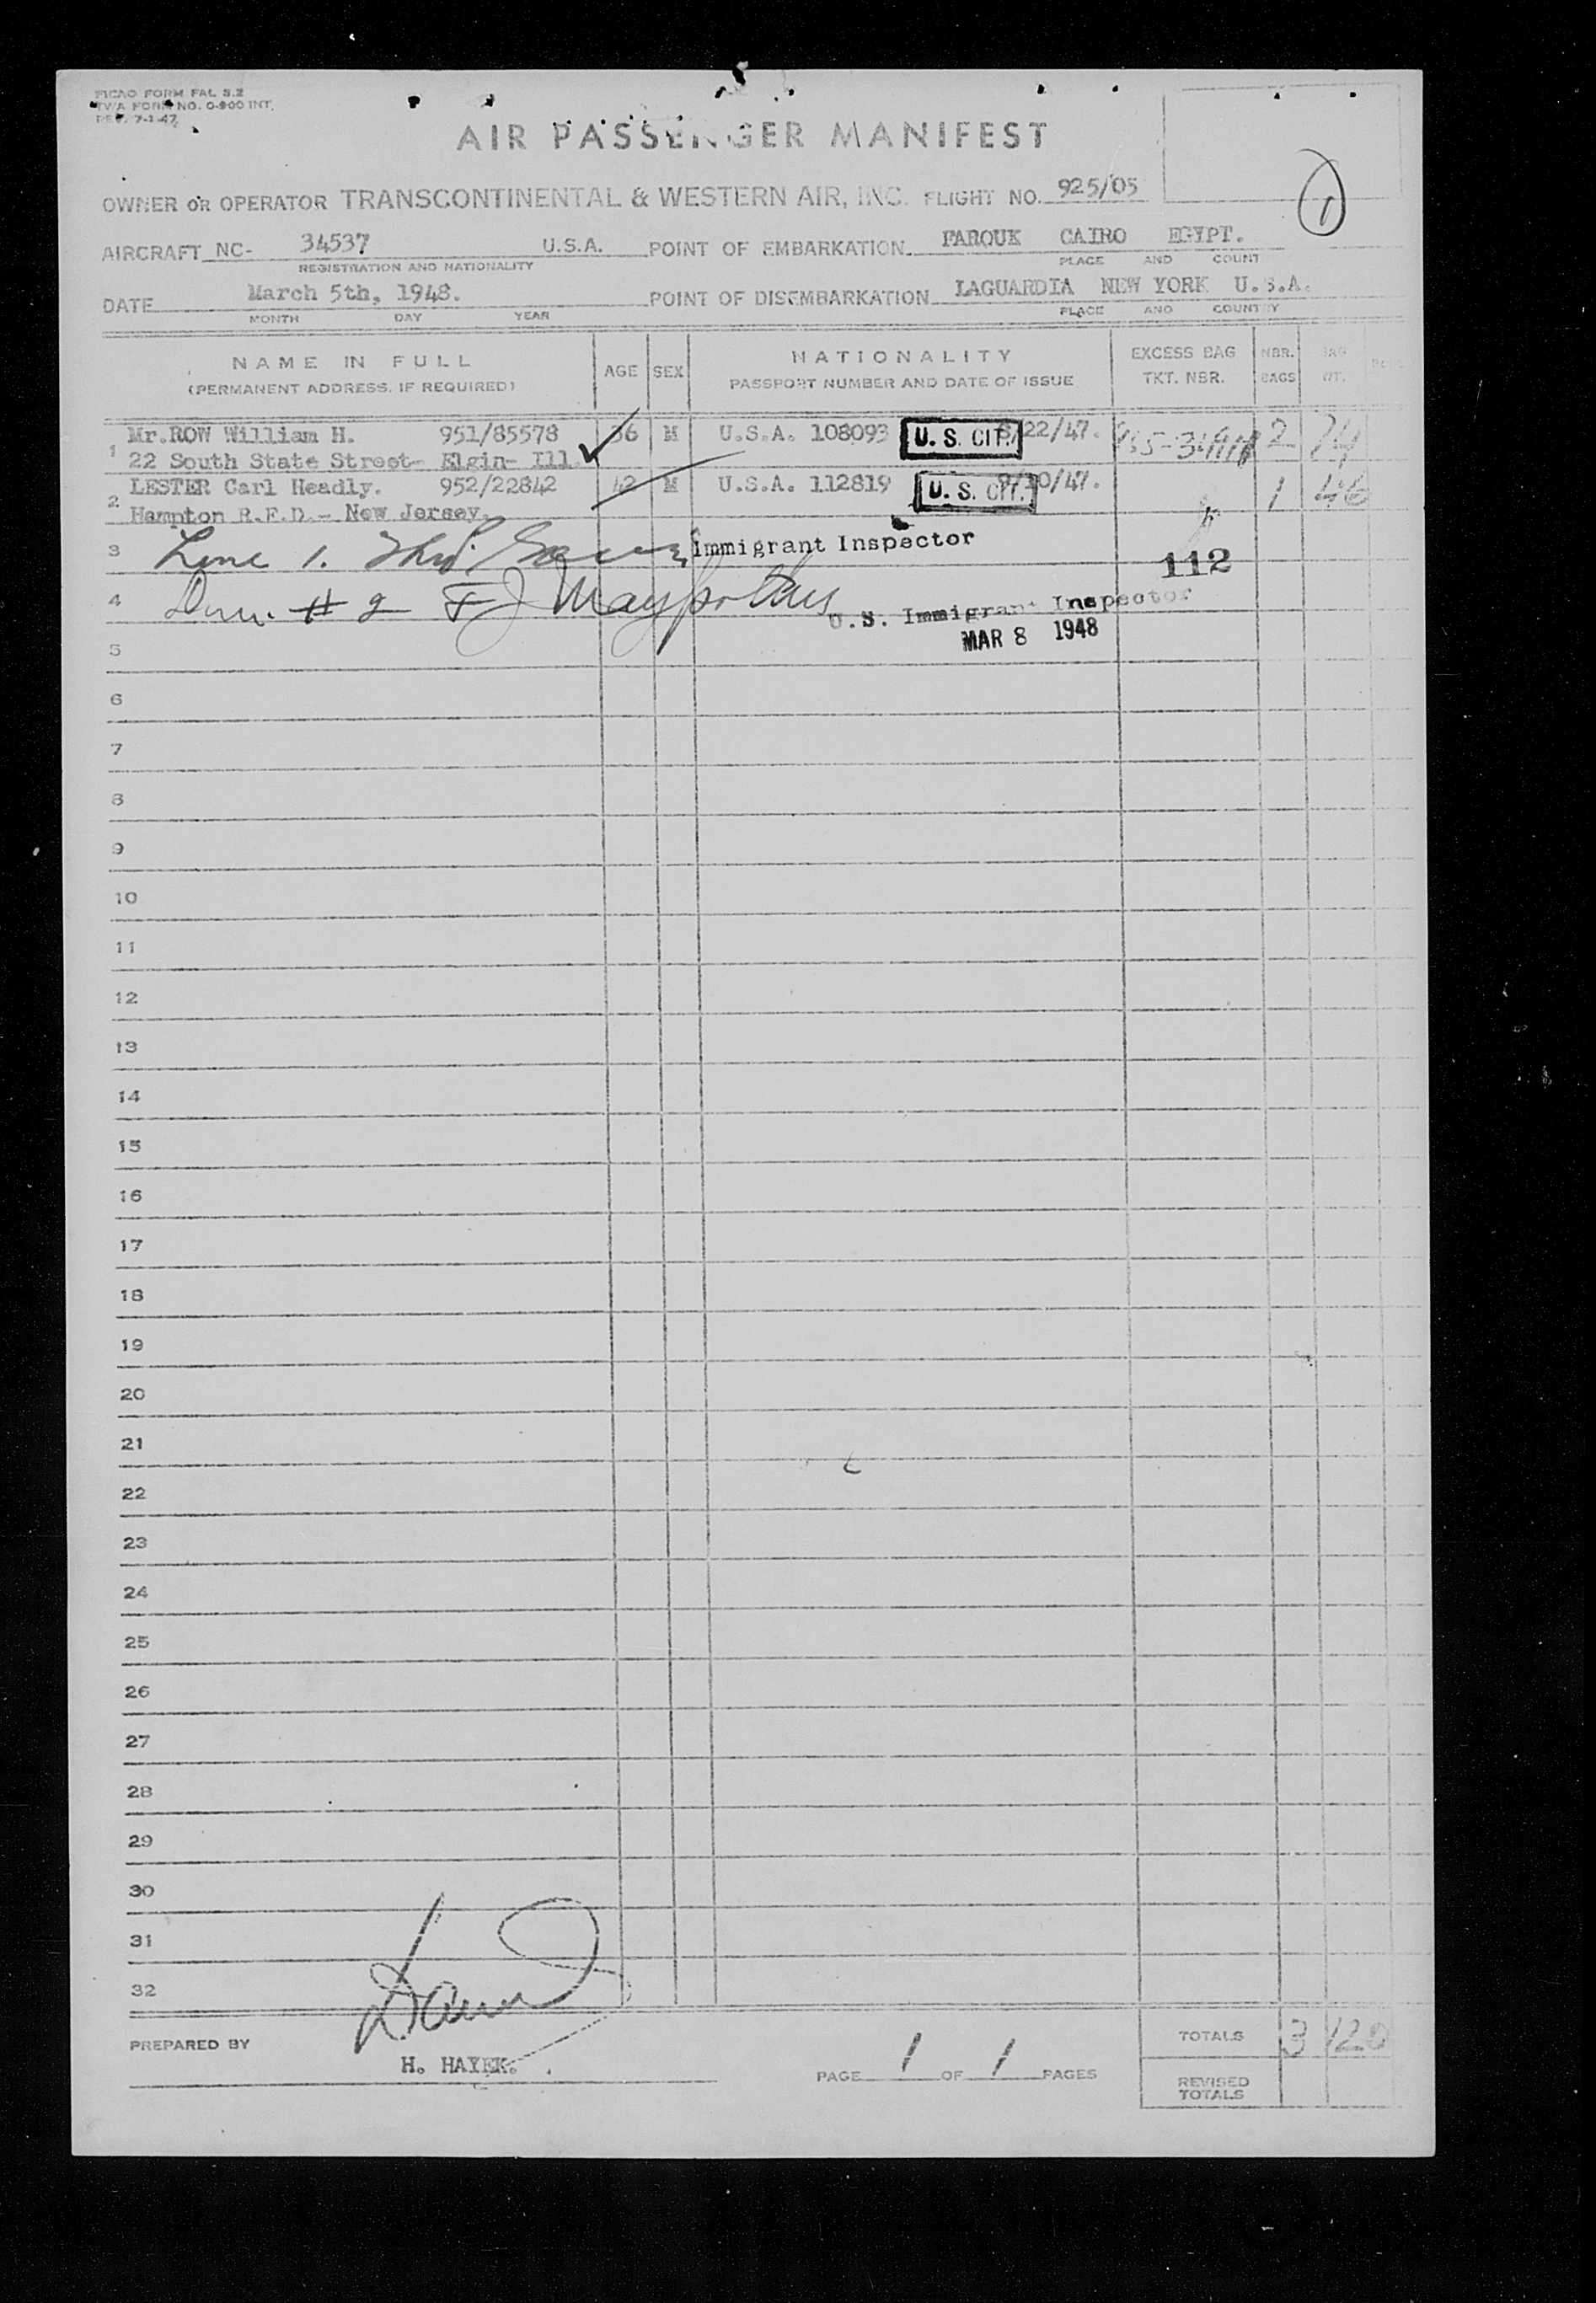 PICAO FORM FAL 3.2
TWA FORM NO. 0-900 INT.
REV. 7-1-47
AIR PASSENGER MANIFEST
OWNER OR OPERATOR TRANSCONTINENTAL & WESTERN AIR, INC. FLIGHT NO. 925/05
1
AIRCRAFT NC- 34537 U.S.A. POINT OF EMBARKATION FAROUK CAIRO EGYPT.
REGISTRATION AND NATIONALITY PLACE AND COUNT
DATE March 5th, 1948. POINT OF DISEMBARKATION LAGUARDIA NEW YORK U.S.A.
MONTH DAY YEAR PLACE AND COUNTRY
NAME IN FULL AGE SEX NATIONALITY EXCESS BAG NBR. BAG
(PERMANENT ADDRESS, IF REQUIRED) PASSPORT NUMBER AND DATE OF ISSUE TKT. NBR. BAGS WT.
1 Mr.ROW William H. 951/85578 36 M U.S.A. 108093 U. S. CIT. /22/47. 2 74
22 South State Street- Elgin- Ill.
2 LESTER Carl Headly. 952/22842 42 M U.S.A. 112819 U. S. CIT. 9/10/47. 1 46
Hampton R.F.D.- New Jersey.
3 Line 1. Immigrant Inspector 112
4 # 2 F J U.S. Immigrant Inspector
MAR 8 1948
5
6
7
8
9
10
11
12
13
14
15
16
17
18
19
20
21
22
23
24
25
26
27
28
29
30
31
32
PREPARED BY H. HAYEK. PAGE 1 OF 1 PAGES TOTALS 3 120
REVISED
TOTALS